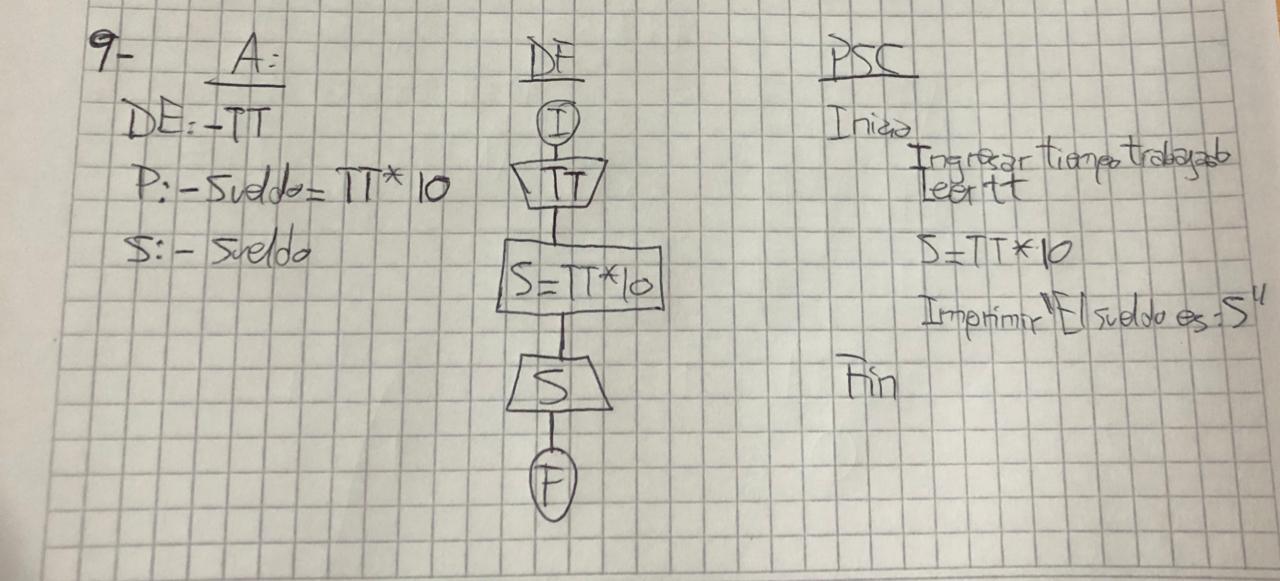 9-
A:
DE: - TT
P: - Sueldo = TT * 10
S: - Sueldo
DF
I
TT
S = TT * 10
S
F
PSC
Inicio
Ingresar tiempo trabajado
Leer tt
S = TT * 10
Imprimir "El sueldo es: S"
Fin